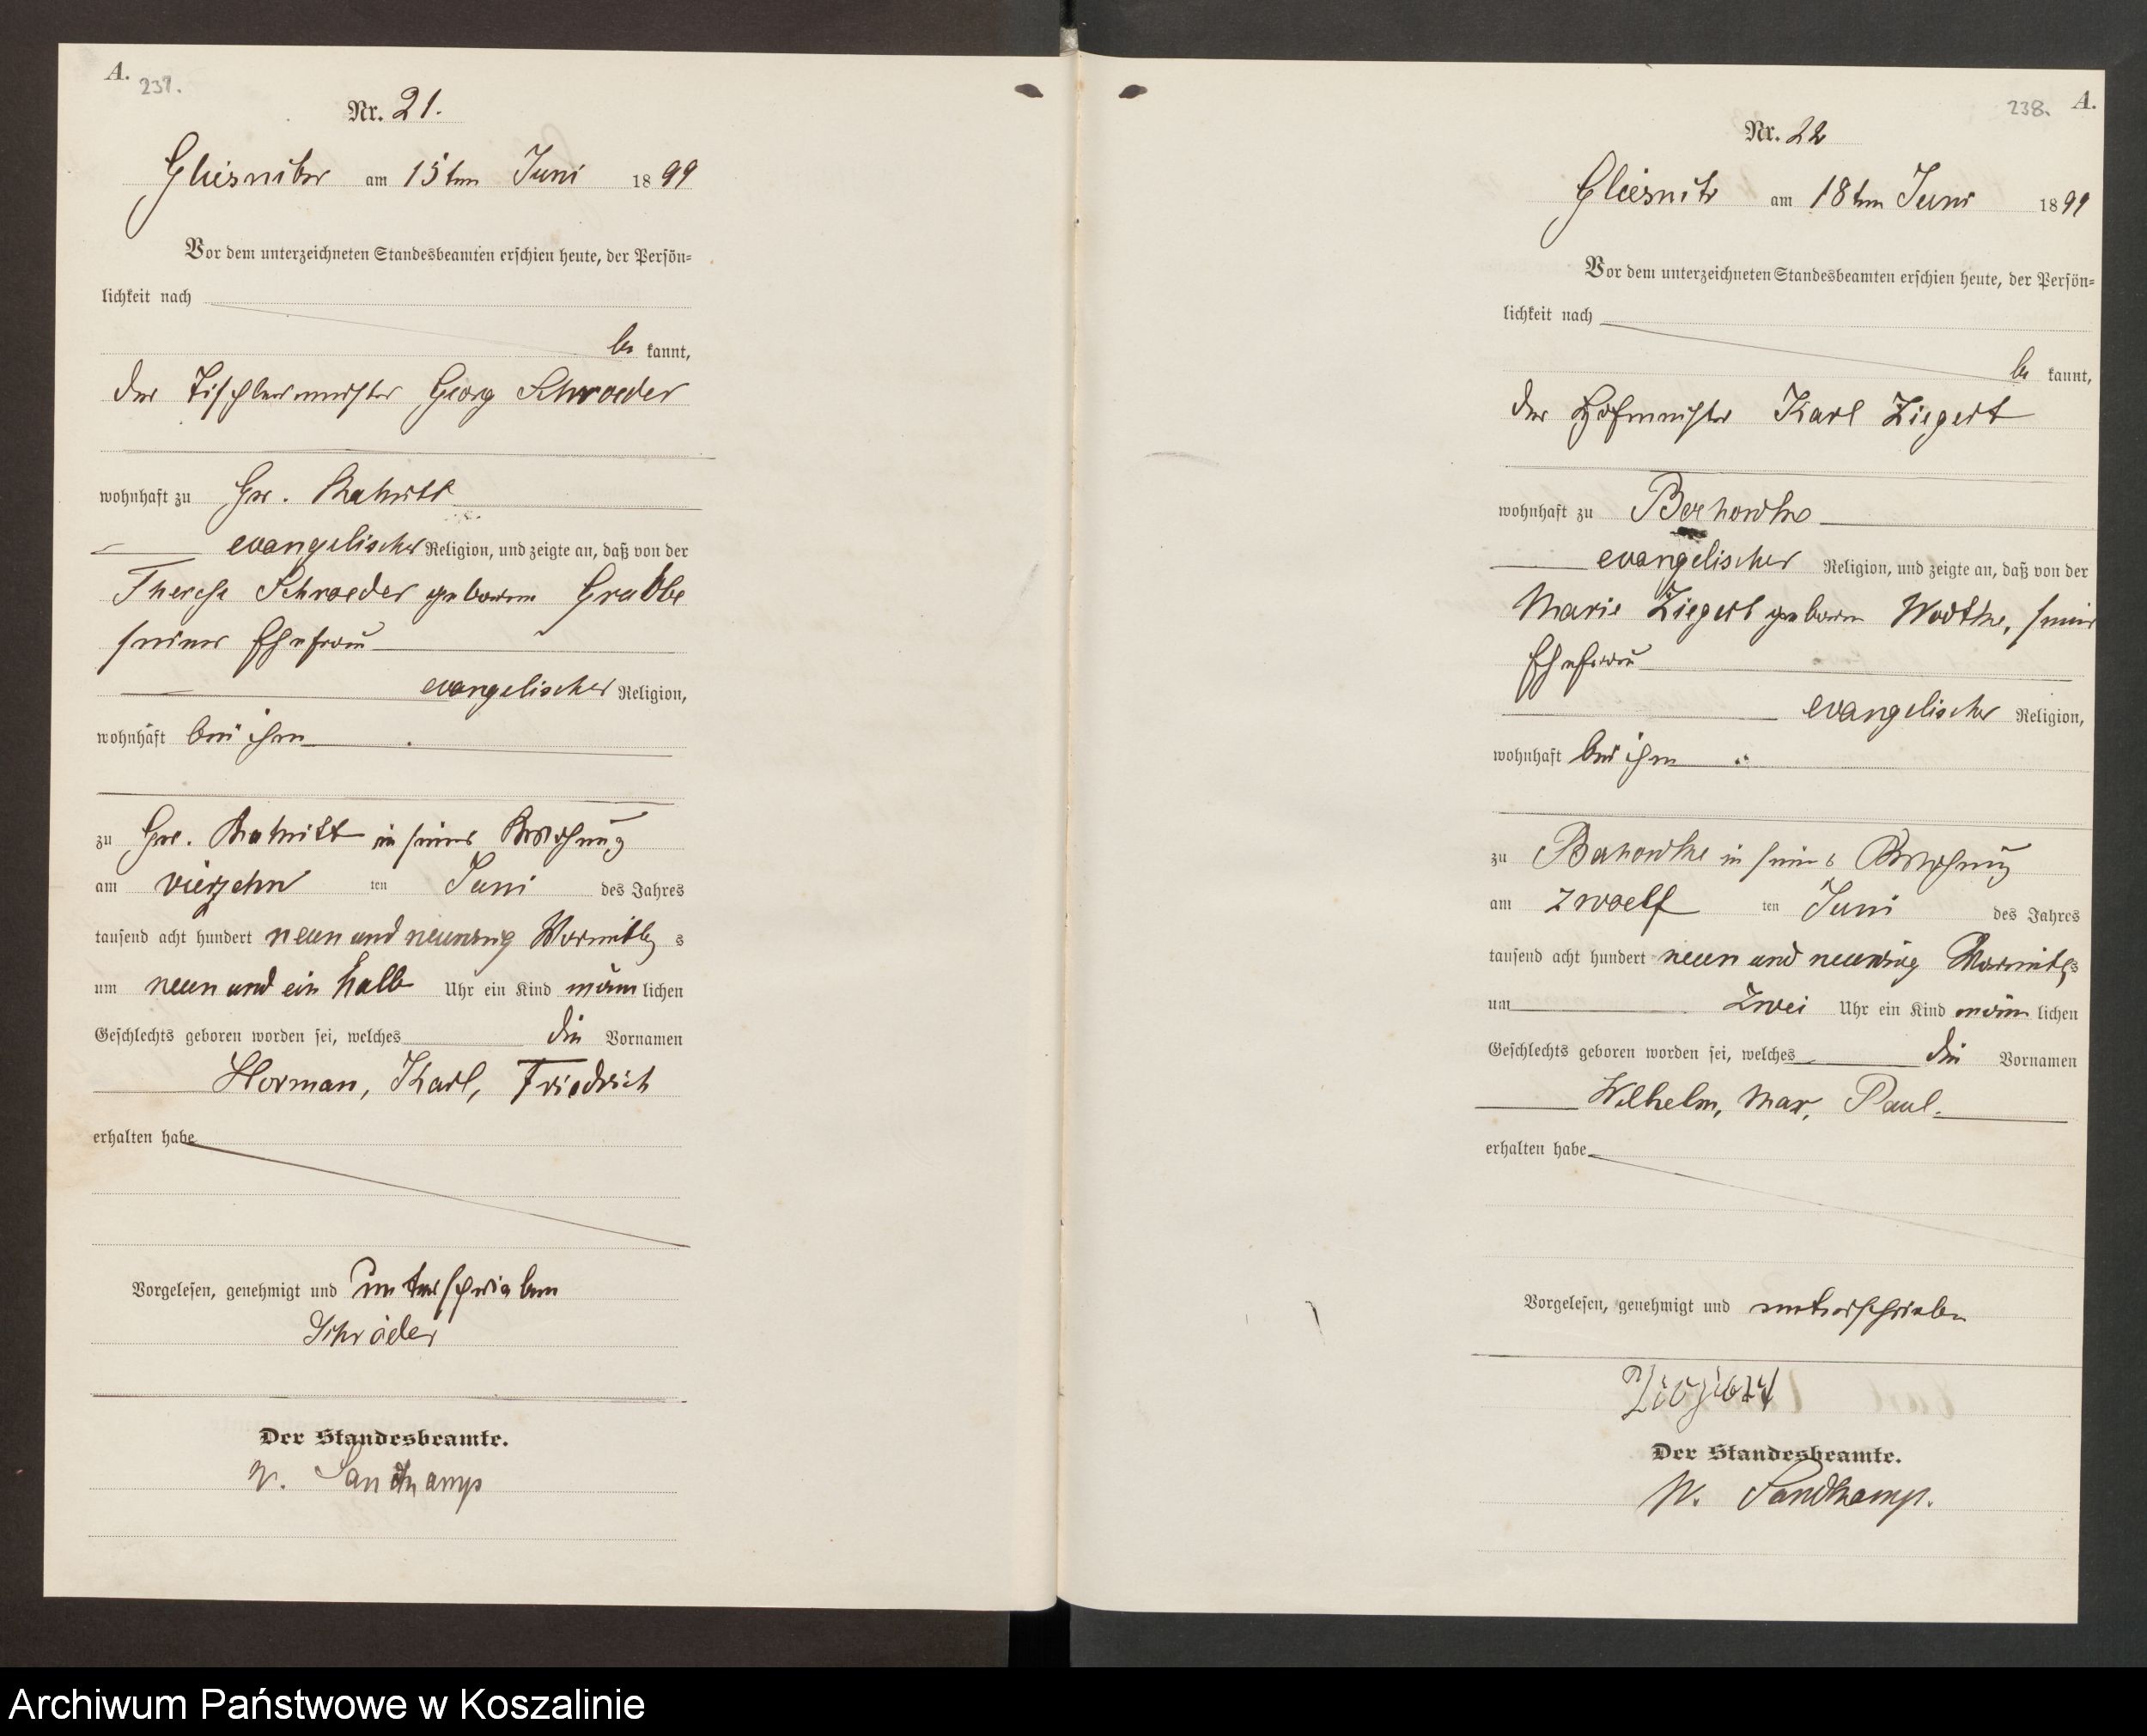 A.
237.
Nr. 21.
Gliesnitz am 15ten Juni 1899
Vor dem unterzeichneten Standesbeamten erschien heute, der Persön-
lichkeit nach
be kannt,
der Tischlermeister Georg Schroeder
wohnhaft zu Gr.
evangelischer Religion, und zeigte an, daß von der
Therese Schroeder geborene Grabbe
seiner Ehefrau
evangelischer Religion,
wohnhaft bei ihm
zu Gr. in seiner Wohnung
am vierzehn ten Juni des Jahres
tausend acht hundert neun und neunzig Vormittags
um neun und ein halb Uhr ein Kind männlichen
Geschlechts geboren worden sei, welches die Vornamen
Herman, Karl, Friedrich
erhalten habe
Vorgelesen, genehmigt und unterschrieben
Schröder
Der Standesbeamte.
W. Sandkamp
238. A.
Nr. 22
Gliesnitz am 18ten Juni 1899
Vor dem unterzeichneten Standesbeamten erschien heute, der Persön-
lichkeit nach
be kannt,
der Hofmeister Karl Ziegert
wohnhaft zu
evangelischer Religion, und zeigte an, daß von der
Marie Ziegert geboren Wodtke, seiner
Ehefrau
evangelischer Religion,
wohnhaft bei ihm
zu in seiner Wohnung
am zwoelf ten Juni des Jahres
tausend acht hundert neun und neunzig Vormittags
um zwei Uhr ein Kind männlichen
Geschlechts geboren worden sei, welches die Vornamen
Wilhelm, Max, Paul.
erhalten habe
Vorgelesen, genehmigt und unterschrieben
Ziegert
Der Standesbeamte.
W. Sandkamp.
Archiwum Państwowe w Koszalinie